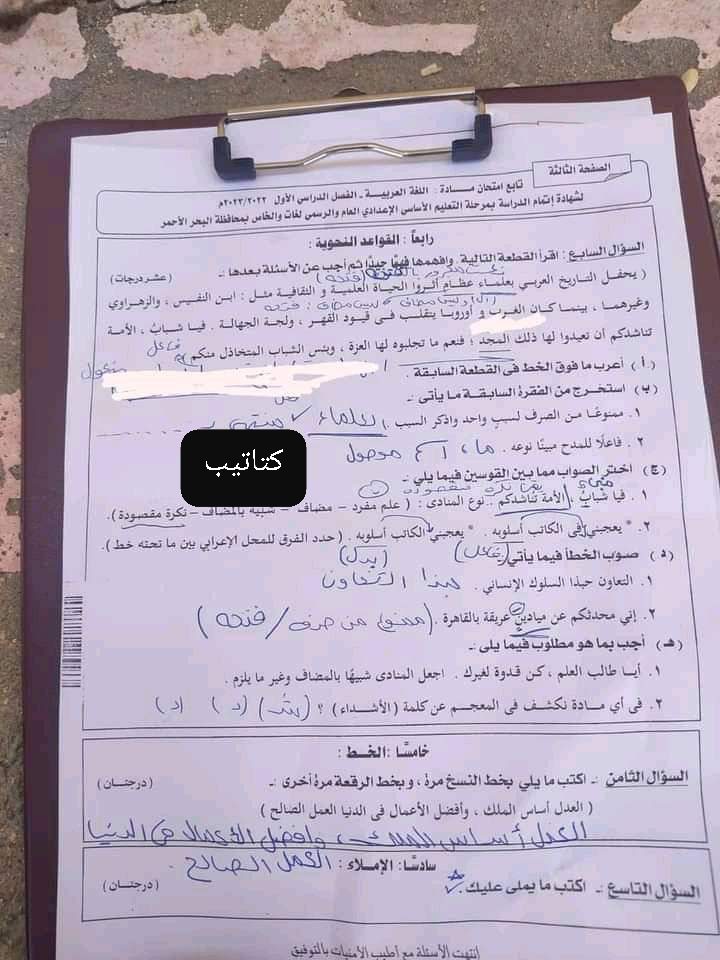 الصفحة الثالثة
تابع امتحان مـــادة : اللغة العربيـــة - الفصل الدراسى الأول ٢٠٢٣/٢٠٢٢م
لشهادة إتمام الدراسة بمرحلة التعليم الأساسى الإعدادي العام والرسمى لغات والخاص بمحافظة البحر الأحمر
رابعاً : القواعد النحوية :
السؤال السابع : اقرأ القطعة التالية . وافهمها فهمًا جيدًا ثم أجب عن الأسئلة بعدها :ـ (عشر درجات)
( يحفل التاريخ العربي بعلماء عظام أثروا الحياة العلمية و الثقافية مثل : ابن النفيس ، والزهراوي
وغيرهما ، بينما كان الغرب و أوروبا يتقلب فى قيود القهر ، ولجة الجهالة . فيا شبابُ ، الأمة
تناشدكم أن تعيدوا لها ذلك المجد ؛ فنعم ما تجلبوه لها العزة ، وبئس الشباب المتخاذل منكم )
فاعل
( أ ) أعرب ما فوق الخط فى القطعة السابقة .
(ب) استخرج من الفقرة السابقة ما يأتى :ـ
١. ممنوعًا من الصرف لسبب واحد واذكر السبب . علماء
٢ . فاعلًا للمدح مبينًا نوعه . ما ، اسم موصول
كتاتيب
(ج) اختر الصواب مما بين القوسين فيما يلي :ـ
نكرة مقصودة
١ . فيا شبابُ ، الأمة تناشدكم .. نوع المنادى : ( علم مفرد – مضاف – شبيه بالمضاف – نكرة مقصودة ).
٢. * يعجبني فى الكاتب أسلوبه . * يعجبني الكاتب أسلوبه . ( حدد الفرق للمحل الإعرابي بين ما تحته خط ).
(فاعل) (بدل)
( د ) صوب الخطأ فيما يأتي :
١ . التعاون حبذا السلوك الإنساني . حبذا التعاون
٢ . إني محدثكم عن ميادينٍ عريقة بالقاهرة . (ممنوع من صرف / فتحه )
(هـ) أجب بما هو مطلوب فيما يلى :ـ
١ . أيـا طالب العلم ، كـن قـدوة لغيرك . اجعل المنادى شبيهًا بالمضاف وغير ما يلزم .
٢ . فى أي مـادة نكـشف فى المعجـم عن كلمة ( الأشـداء ) ؟ (شد) ( د ) ( د )
خامسًا : الخط :
السؤال الثامن :ـ اكتب ما يلي بخط النسخ مرة ، و بخط الرقعة مرة أخرى :ـ (درجتـان)
( العدل أساس الملك ، وأفضل الأعمال فى الدنيا العمل الصالح )
العدل أساس الملك ، وافضل الاعمال فى الدنيا
العمل الصالح .
سادسًا : الإملاء :
السؤال التاسع :ـ اكتب ما يملى عليك . (درجتـان)
انتهت الأسئلة مع أطيب الأمنيات بالتوفيق